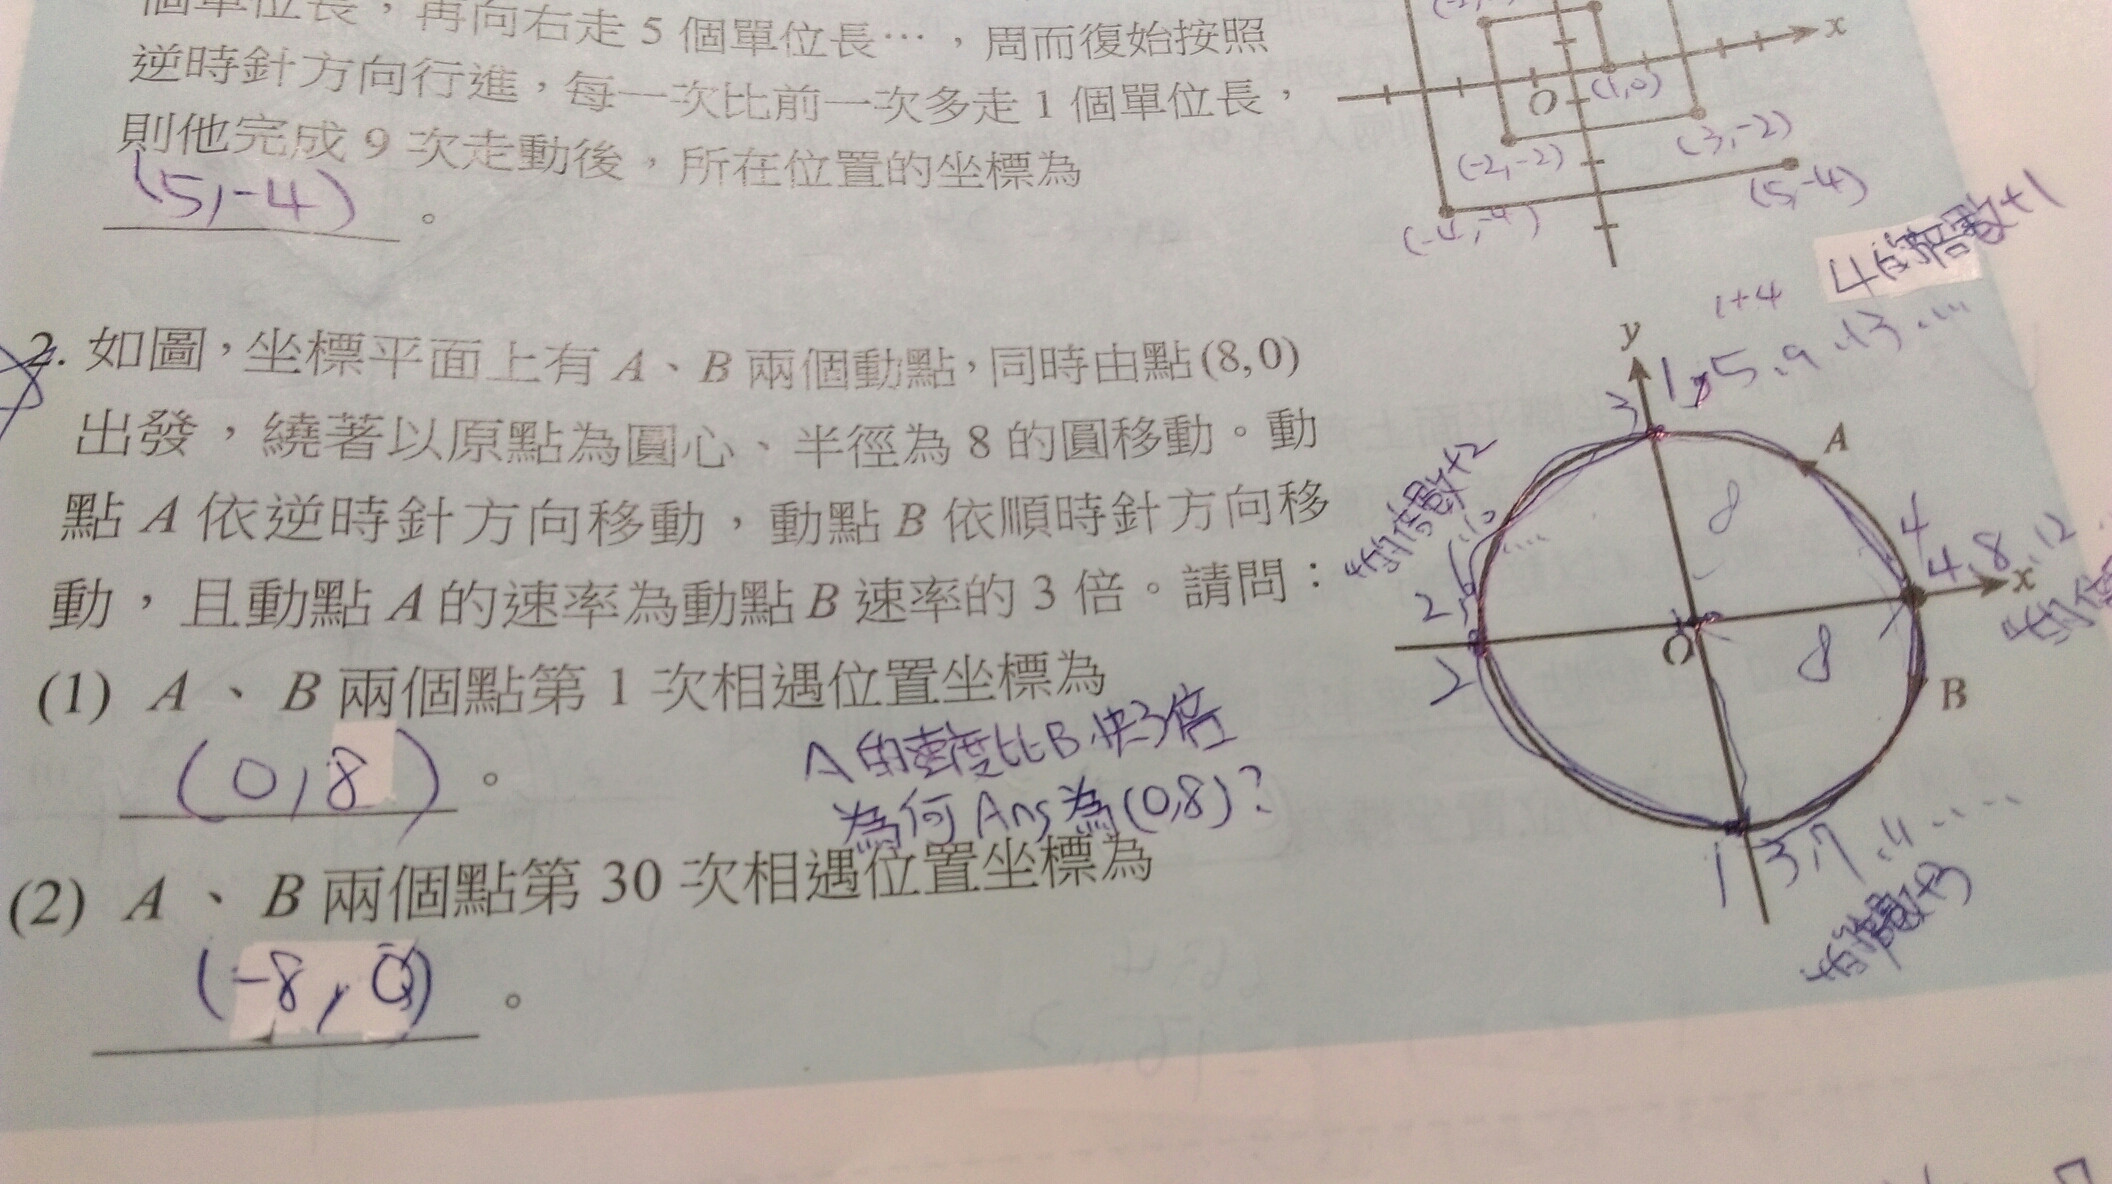 個單位長，再向右走 5 個單位長…，周而復始按照
逆時針方向行進，每一次比前一次多走 1 個單位長，
則他完成 9 次走動後，所在位置的坐標為
(5,-4)。
x
O
(1,0)
(-2,-2)
(3,-2)
(-4,-4)
(5,-4)
2. 如圖，坐標平面上有 A、B 兩個動點，同時由點(8,0)
出發，繞著以原點為圓心、半徑為 8 的圓移動。動
點 A 依逆時針方向移動，動點 B 依順時針方向移
動，且動點 A 的速率為動點 B 速率的 3 倍。請問：
(1) A、B 兩個點第 1 次相遇位置坐標為
(0,8)。
A的速度比B快3倍
為何Ans為(0,8)?
(2) A、B 兩個點第 30 次相遇位置坐標為
(-8,0)。
4的倍數+1
1+4
y
3
1,5,9,13....
A
4的倍數+2
8
4
4,8,12
x
2
2
O
8
B
1
3,7,11.....
4的倍數+3